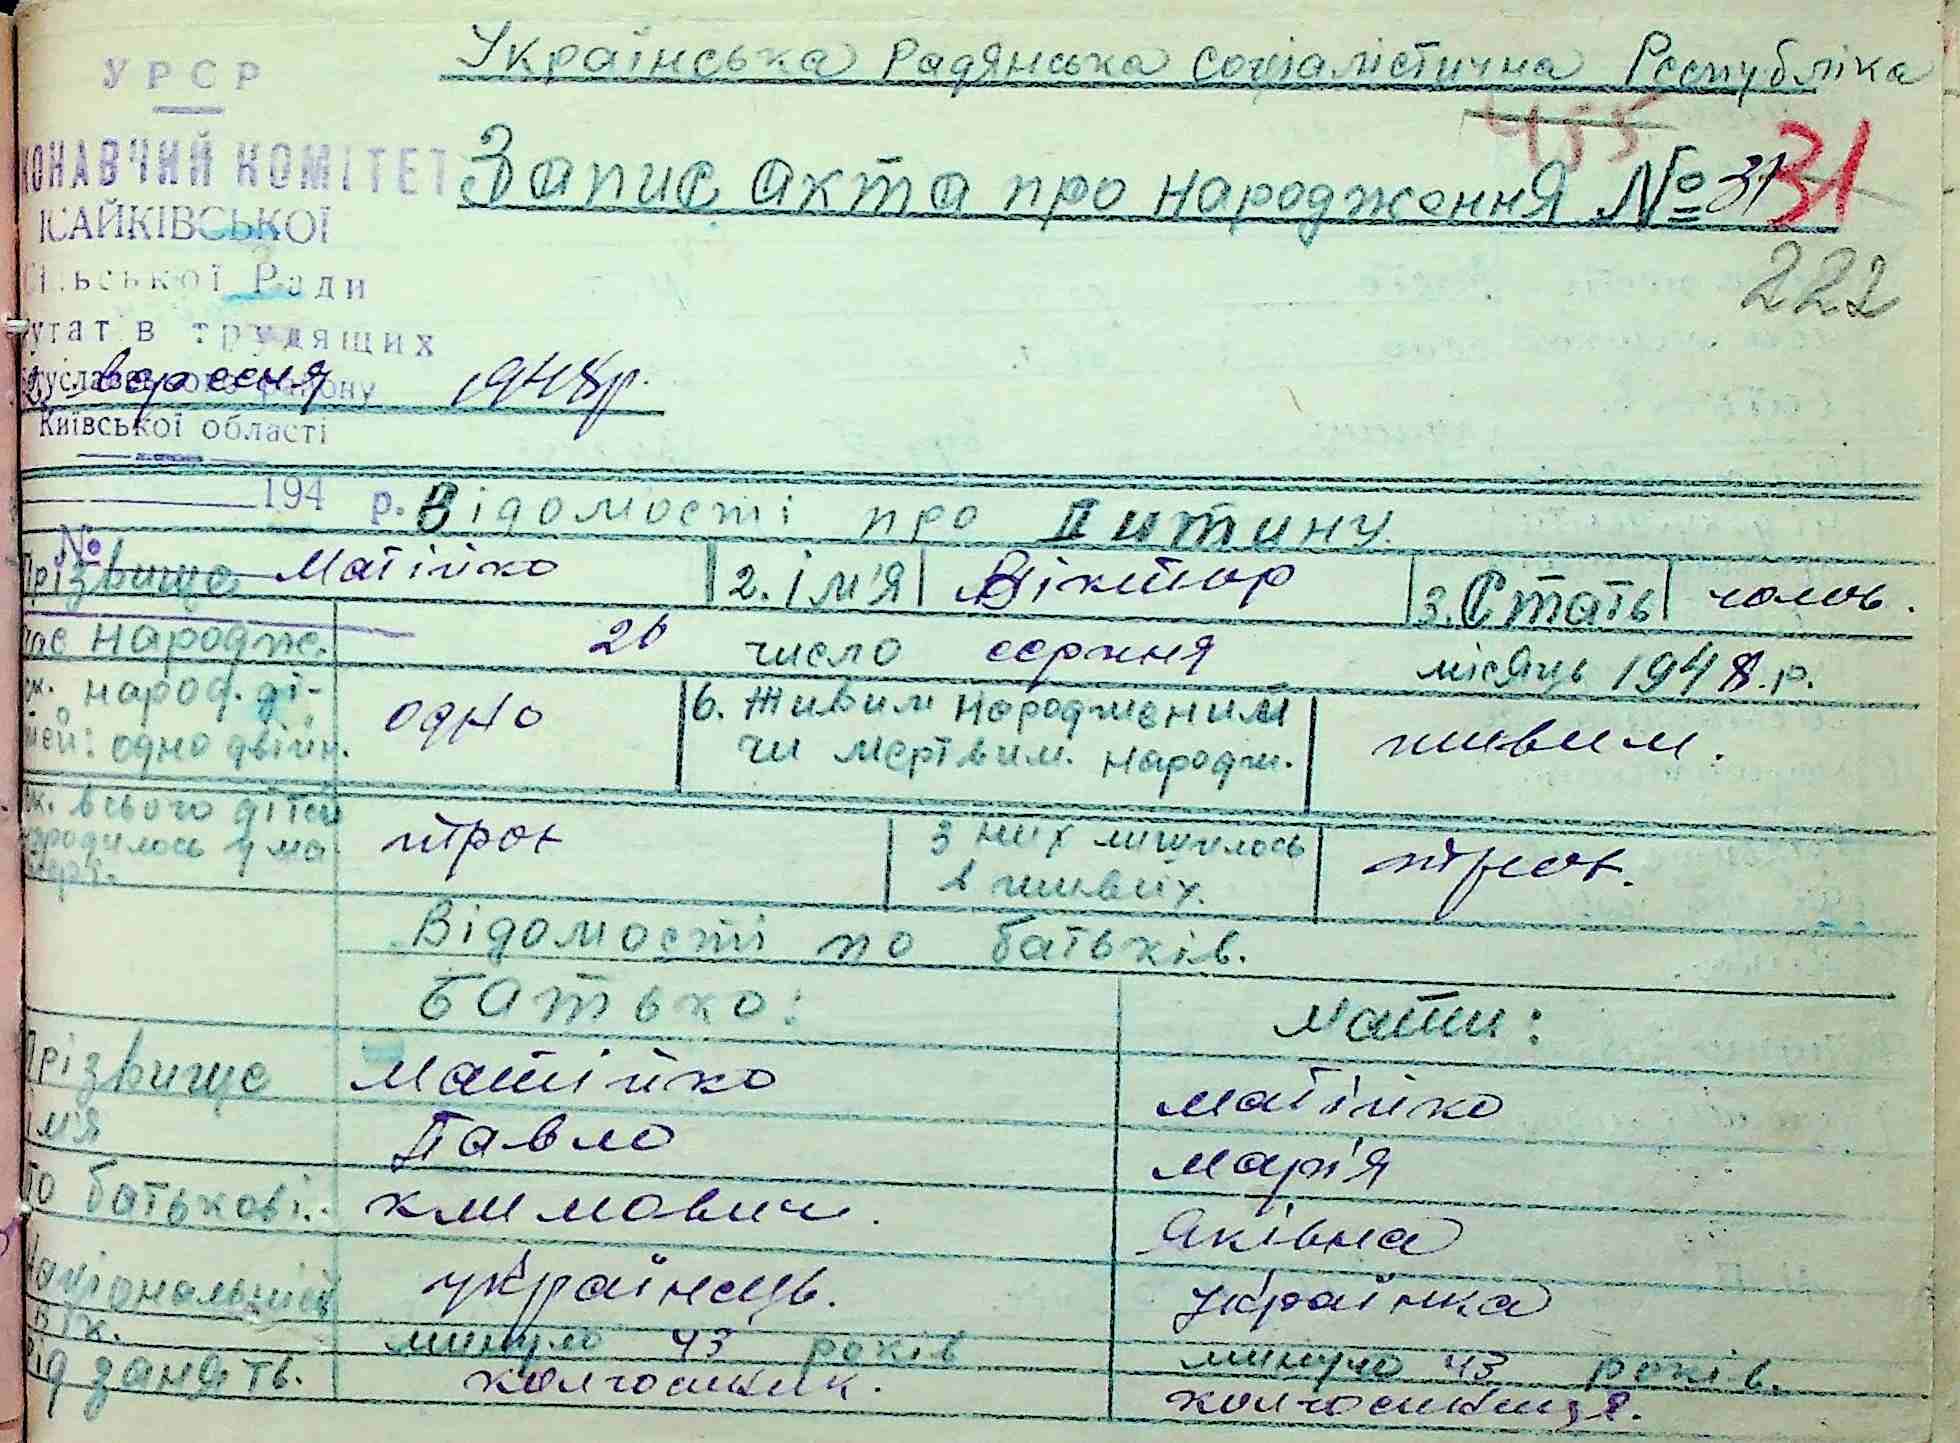 УРСР
Українська Радянська Соціалістична Республіка
455
КОНАВЧИЙ КОМІТЕТ
Запис акта про народження № 31 31
ІСАЙКІВСЬКОЇ
222
Сільської Ради
путатів трудящих
Богуславського району
вересня 1948р.
Київської області
194 р.
№
Відомості про дитину.
Прізвище Матійко 2. Ім'я Віктор 3. Стать чолов.
час народж. 26 число серпня місяць 1948.р.
ск. народ. ді-
тей: одно двійн. одно 6. Живим народженим
чи мертвим. народж. живим.
ск. всього дітей
народилось у ма
тері. троє З них лишилось
в живих. троє.
Відомості по батьків.
Батько: Мати:
Прізвище Матійко Матійко
Ім'я Павло Марія
По батькові. Климович. Яківна
Національність українець. українка
Вік. минуло 43 років минуло 43 років.
Рід занять. колгоспник. колгоспниця.